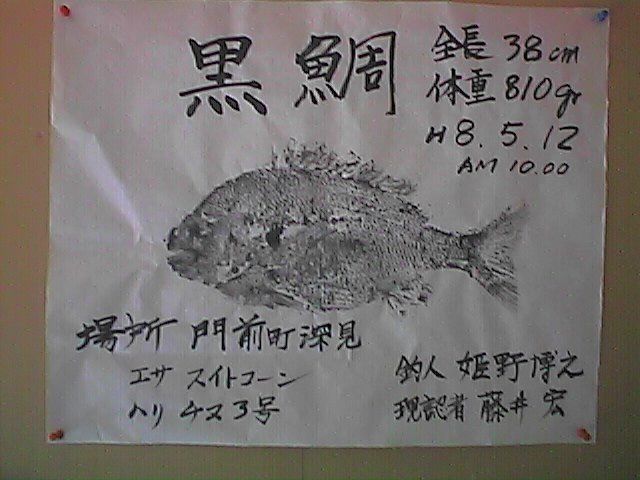 黒鯛
全長 38cm
体重 810gr
H8.5.12
AM 10.00
場所 門前町深見
エサ スイトコーン
ハリ チヌ3号
釣人 姫野博之
現認者 藤井宏